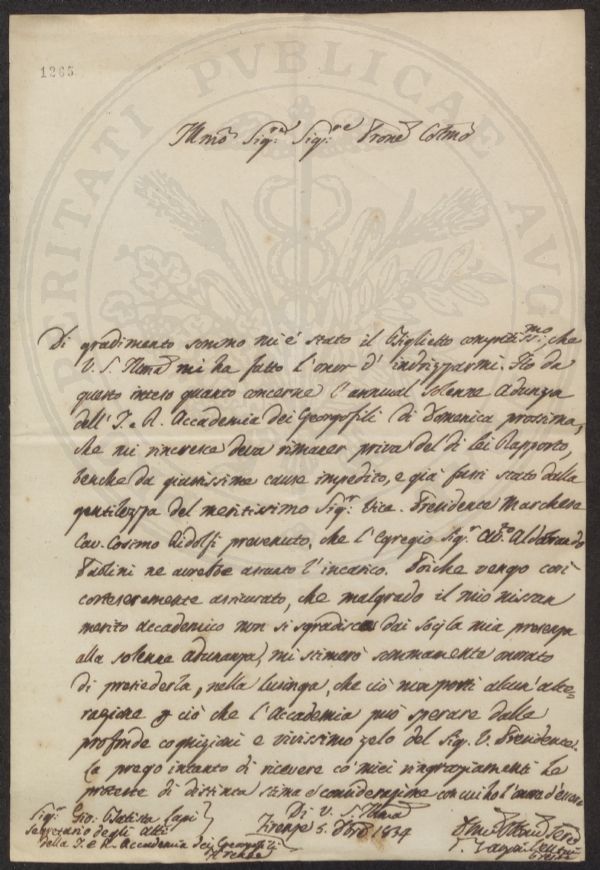 1265
PERITATI PVBLICAE AVG
Illmo Sigre Sigre Prone Colmo
Di gradimento sommo mi è stato il Biglietto compitissimo, che
V. S. Illma mi ha fatto l'onor d'indrizzarmi. Ho da
questo inteso quanto concerne l'annual solenne Adunza
dell'I. e R. Accademia dei Georgofili di Domenica prossima,
che mi rincresce deva rimaner priva del di lei Rapporto,
benche da giustissime cause impedito, e già fussi stato dalla
gentilezza del meritissimo Sigr Vice-Presidente Marchese
Cav. Cosimo Ridolfi prevenuto, che l'Egregio Sigr Aldobrando
Paolini ne avrebbe assunto l'incarico. Poiche vengo così
cortesemente assicurato, che malgrado il mio nissun
merito accademico non si sgradisca dai Soci la mia presenza
alla solenne adunanza, mi stimerò sommamente onorato
di presiederla, nella lusinga, che ciò non porti alcun'alte-
razione a ciò che l'Accademia può sperare dalle
profonde cognizioni e vivissimo zelo del Sig. V. Presidente.
La prego intanto di ricevere co' miei ringraziamenti le
proteste di distinta stima e considerazione con cui ho l'onore d'essere
Di V. S. Illma
Sigr Gio: Batista Lapi
Segretario degli Atti
della I. e R. Accademia dei Georgofili
Firenze
Firenze 5. 1834